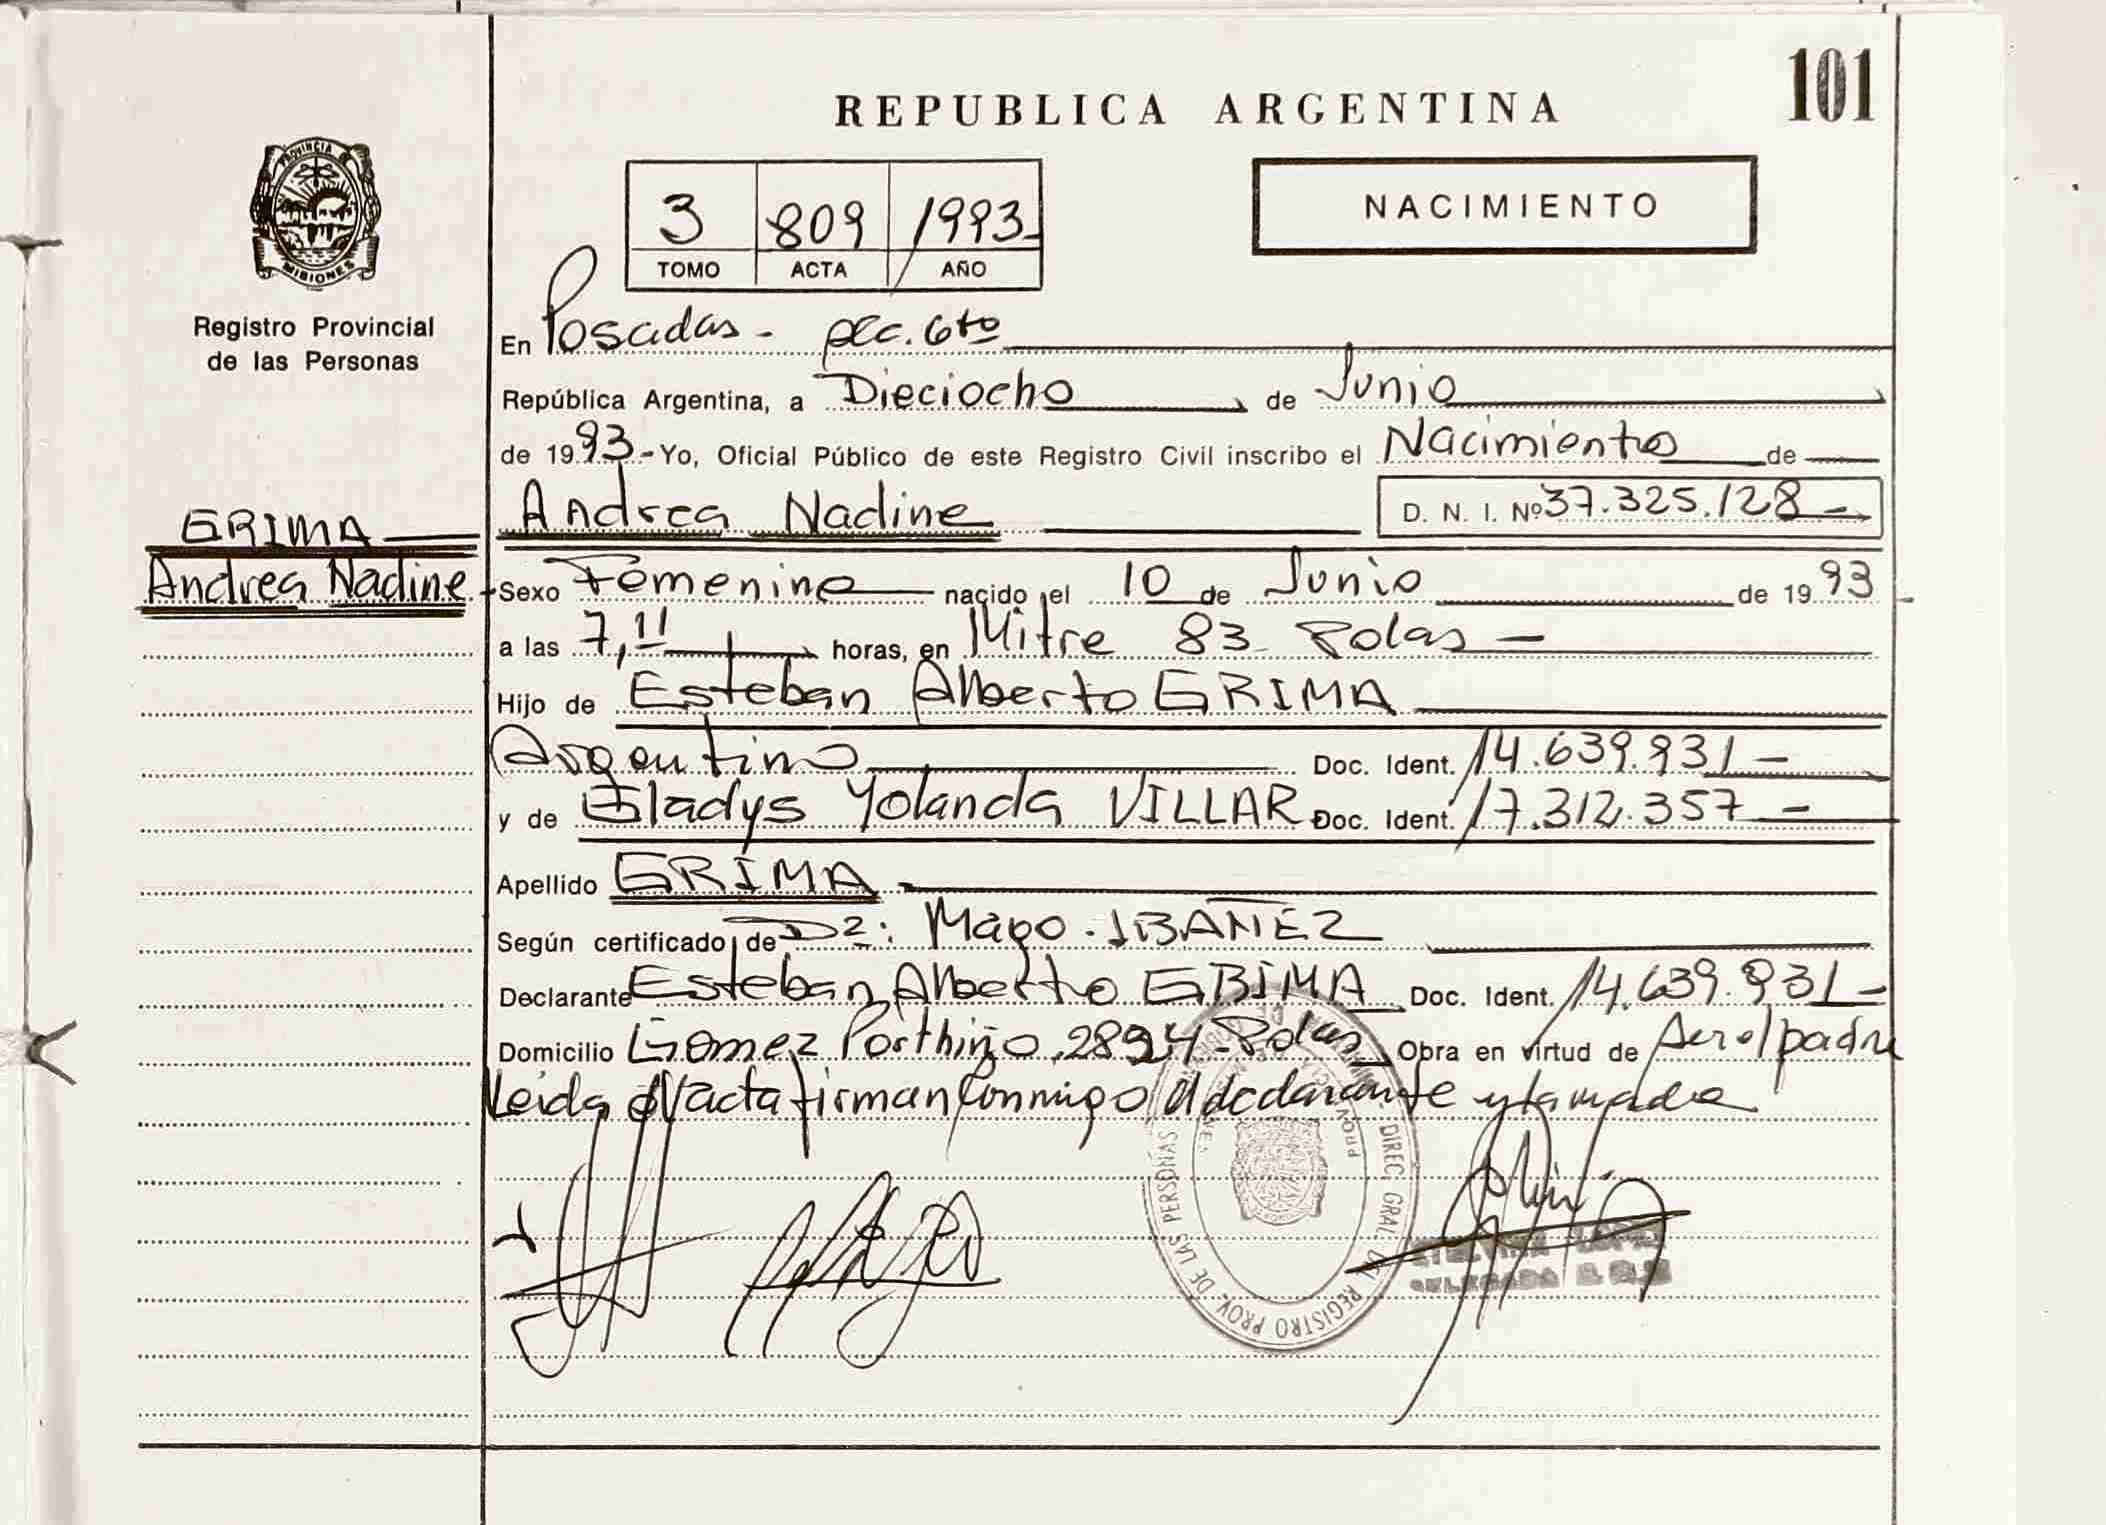 101
REPUBLICA ARGENTINA
PROVINCIA DE
MISIONES
Registro Provincial
de las Personas
3 809 1993
TOMO ACTA AÑO
NACIMIENTO
En Posadas - Secc. 6to
República Argentina, a Dieciocho de Junio
de 1993.- Yo, Oficial Público de este Registro Civil inscribo el Nacimiento de
Andrea Nadine D. N. I. Nº 37.325.128-
GRIMA
Andrea Nadine
Sexo Femenino nacido el 10 de Junio de 1993
a las 7,11 horas, en Mitre 83 - Pdas -
Hijo de Esteban Alberto GRIMA
Argentino Doc. Ident. 14.639.931-
y de Gladys Yolanda VILLAR Doc. Ident. 17.312.357-
Apellido GRIMA
Según certificado de IBAÑEZ
Declarante Esteban Alberto GRIMA Doc. Ident. 14.639.931-
Domicilio Gomez Porthiño 2894 - Pdas Obra en virtud de ser el padre
Leida el acta firman conmigo el declarante y la madre
DIREC. GRAL. DEL REGISTRO PROV. DE LAS PERSONAS